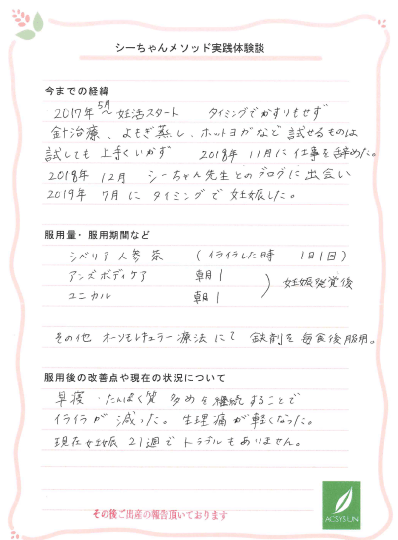 シーちゃんメソッド実践体験談
今までの経緯
2017年5月〜妊活スタート タイミングでかすりもせず
針治療、よもぎ蒸し、ホットヨガなど試せるものは
試しても上手くいかず 2018年11月に仕事を辞めた。
2018年12月 シーちゃん先生とのブログに出会い
2019年7月にタイミングで妊娠した。
服用量・服用期間など
シベリア人参茶 (イライラした時 1日1回)
アンズボディケア 朝1
ユニカル 朝1
) 妊娠発覚後
その他 オーソモレキュラー療法にて 鉄剤を毎食後服用。
服用後の改善点や現在の状況について
早寝・たんぱく質多めを継続することで
イライラが減った。生理痛が軽くなった。
現在妊娠21週でトラブルもありません。
その後ご出産の報告頂いております
ACSYSUN